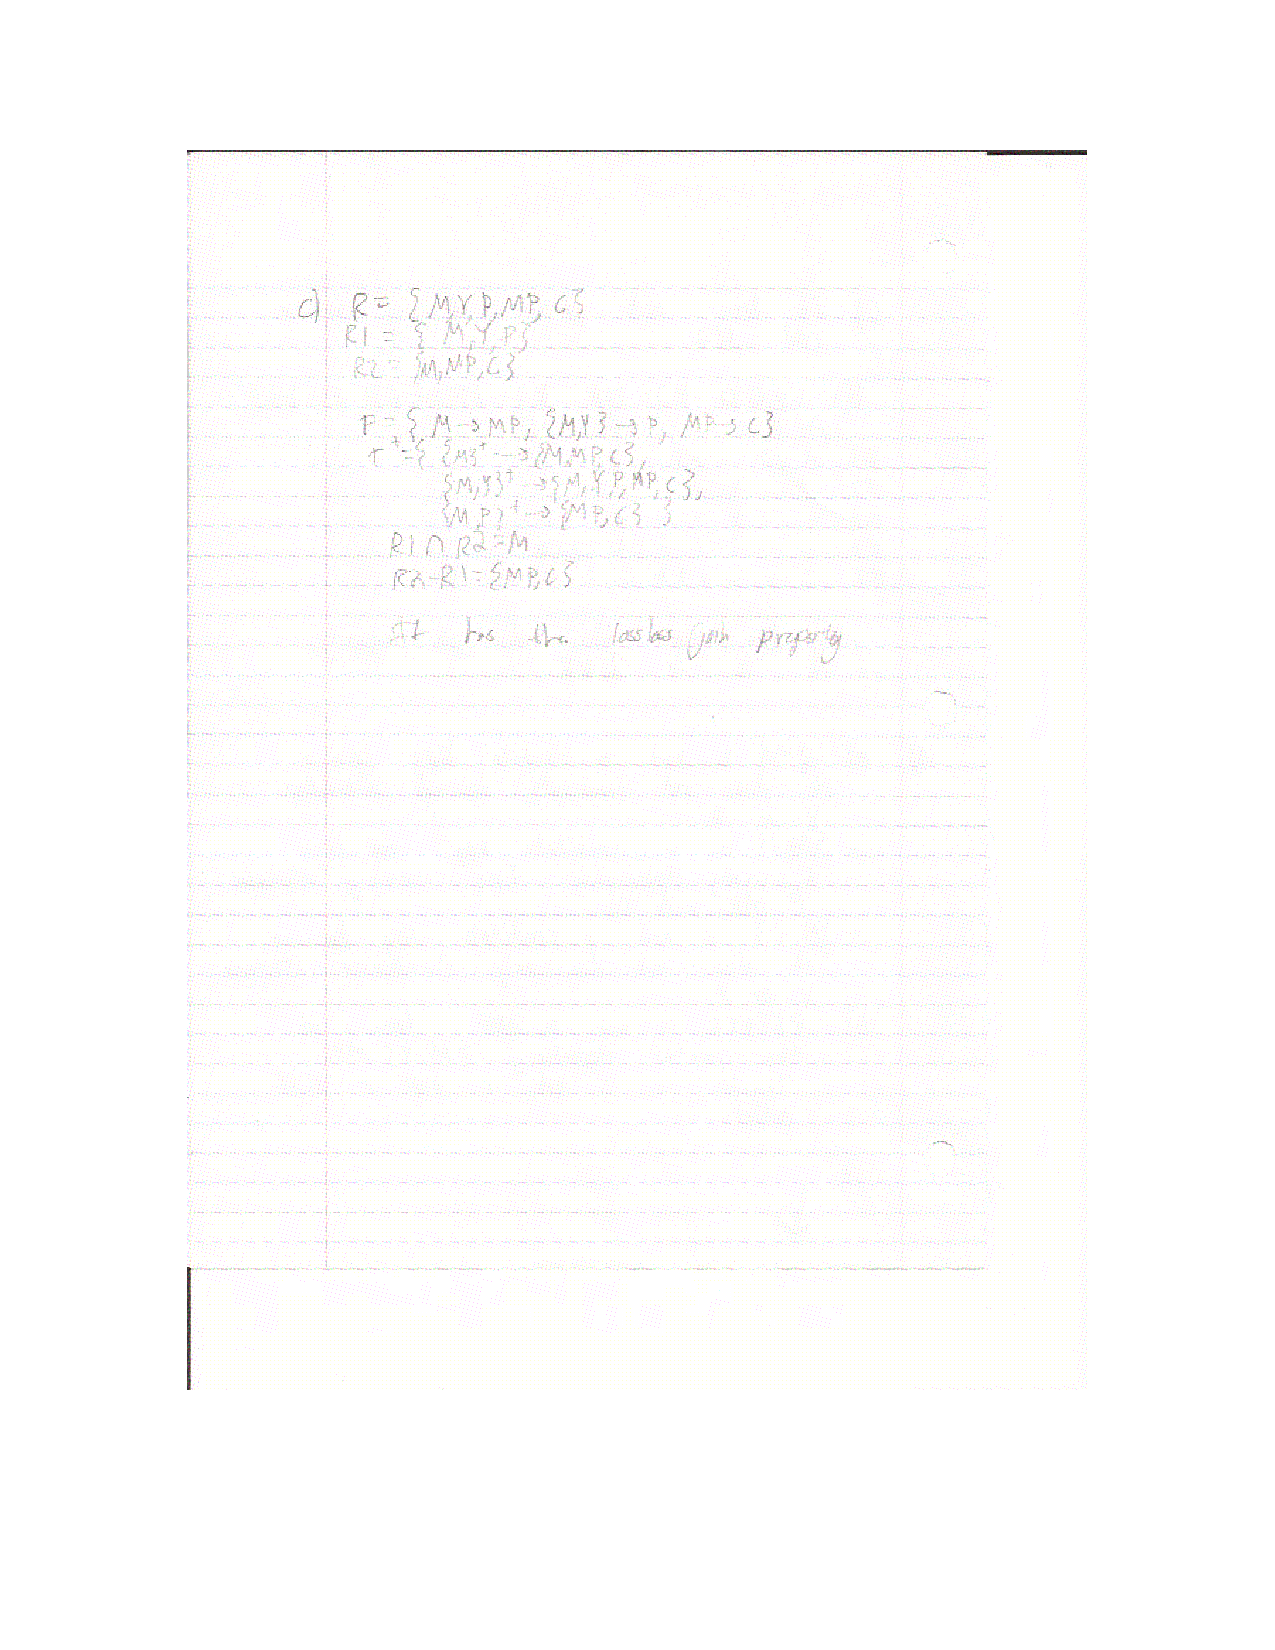 c) R = {M,Y,P,MP,C}
R1 = {M,Y,P}
R2 = {M,MP,C}
F = { M→MP, {M,Y}→P, MP→C}
F+ = { {M}+ → {M,MP,C},
{M,Y}+ → {M,Y,P,MP,C},
{M,P}+ → {MP,C} }
R1 ∩ R2 = M
R2-R1 = {MP,C}
It has the lossless join property